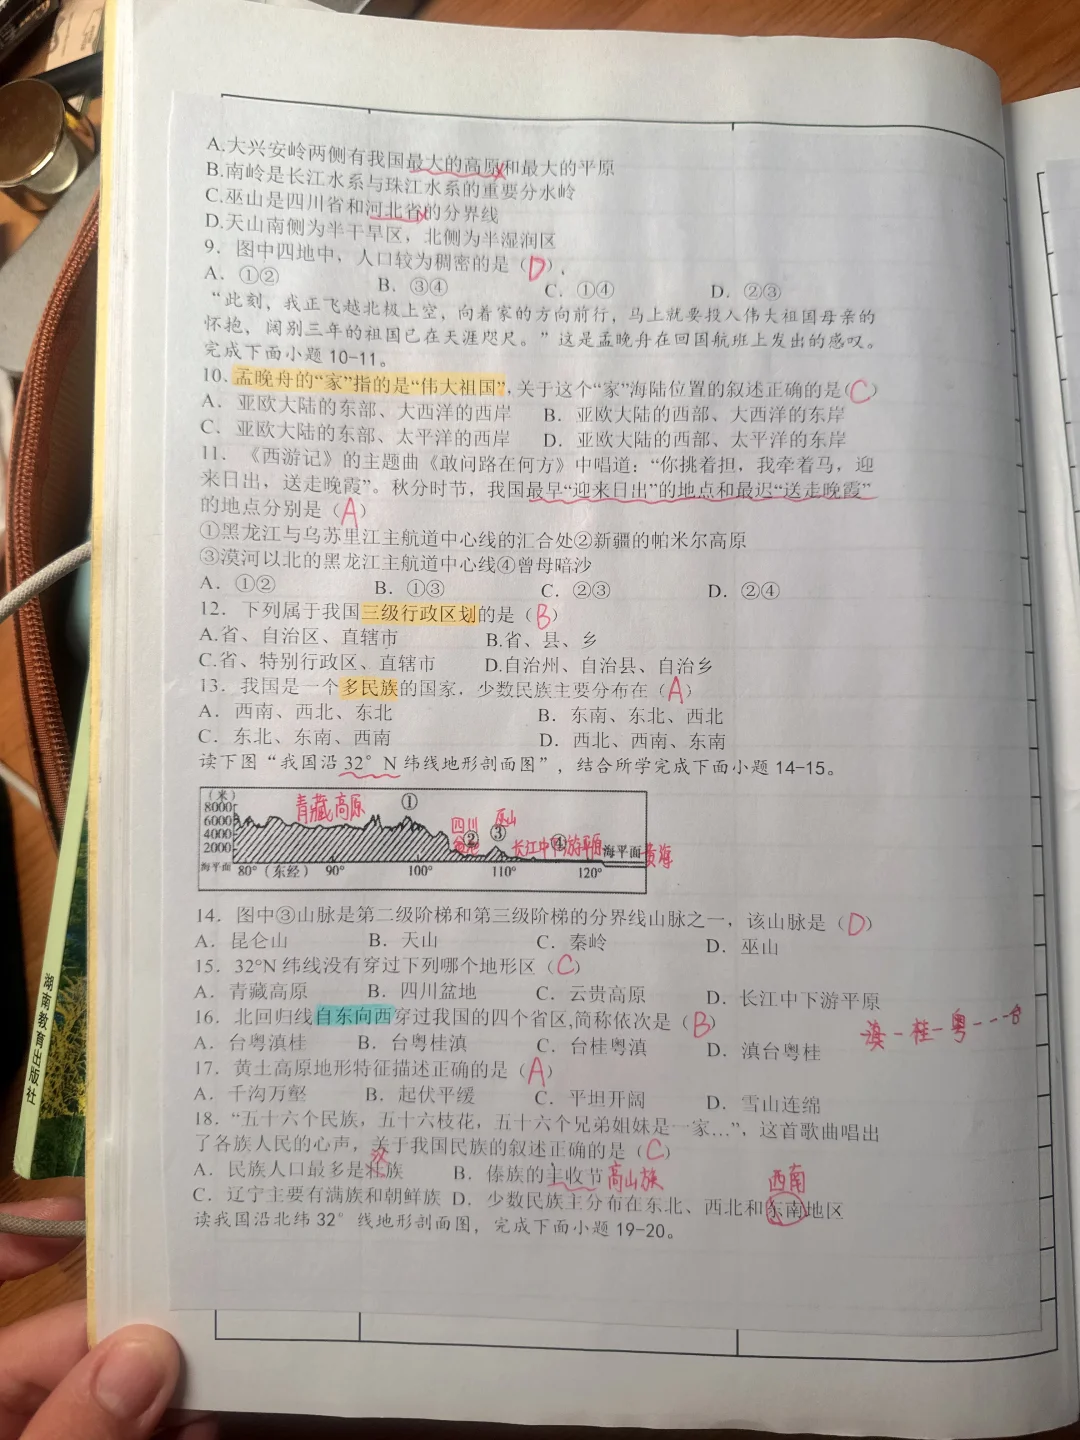 A.大兴安岭两侧有我国最大的高原和最大的平原
B.南岭是长江水系与珠江水系的重要分水岭
C.巫山是四川省和河北省的分界线
D.天山南侧为半干旱区，北侧为半湿润区
9．图中四地中，人口较为稠密的是（D）．
A．①②　B．③④　C．①④　D．②③
“此刻，我正飞越北极上空，向着家的方向前行，马上就要投入伟大祖国母亲的
怀抱，阔别三年的祖国已在天涯咫尺。”这是孟晚舟在回国航班上发出的感叹。
完成下面小题10-11。
10．孟晚舟的“家”指的是“伟大祖国”,关于这个“家”海陆位置的叙述正确的是(C)
A．亚欧大陆的东部、大西洋的西岸　B．亚欧大陆的西部、大西洋的东岸
C．亚欧大陆的东部、太平洋的西岸　D．亚欧大陆的西部、太平洋的东岸
11．《西游记》的主题曲《敢问路在何方》中唱道：“你挑着担，我牵着马，迎
来日出，送走晚霞”。秋分时节，我国最早“迎来日出”的地点和最迟“送走晚霞”
的地点分别是（A）
①黑龙江与乌苏里江主航道中心线的汇合处②新疆的帕米尔高原
③漠河以北的黑龙江主航道中心线④曾母暗沙
A．①②　B．①③　C．②③　D．②④
12．下列属于我国三级行政区划的是（B）
A.省、自治区、直辖市　B.省、县、乡
C.省、特别行政区、直辖市　D.自治州、自治县、自治乡
13．我国是一个多民族的国家．少数民族主要分布在（A）
A．西南、西北、东北　B．东南、东北、西北
C．东北、东南、西南　D．西北、西南、东南
读下图“我国沿32°N纬线地形剖面图”，结合所学完成下面小题14-15。
(米)
8000
6000
4000
2000
海平面
青藏高原
①
四川盆地
②
巫山
③
长江中下游平原
④
海平面
黄海
80°(东经)　90°　100°　110°　120°
14．图中③山脉是第二级阶梯和第三级阶梯的分界线山脉之一，该山脉是（D）
A．昆仑山　B．天山　C．秦岭　D．巫山
15．32°N纬线没有穿过下列哪个地形区（C）
A．青藏高原　B．四川盆地　C．云贵高原　D．长江中下游平原
16．北回归线自东向西穿过我国的四个省区,简称依次是（B）
滇－桂－粤---台
A．台粤滇桂　B．台粤桂滇　C．台桂粤滇　D．滇台粤桂
17．黄土高原地形特征描述正确的是（A）
A．千沟万壑　B．起伏平缓　C．平坦开阔　D．雪山连绵
18．“五十六个民族，五十六枝花，五十六个兄弟姐妹是一家…”，这首歌曲唱出
了各族人民的心声，关于我国民族的叙述正确的是（C）
汉
A．民族人口最多是壮族　B．傣族的丰收节 高山族
西南
C．辽宁主要有满族和朝鲜族　D．少数民族主分布在东北、西北和东南地区
读我国沿北纬32°线地形剖面图，完成下面小题19-20。
湖南教育出版社